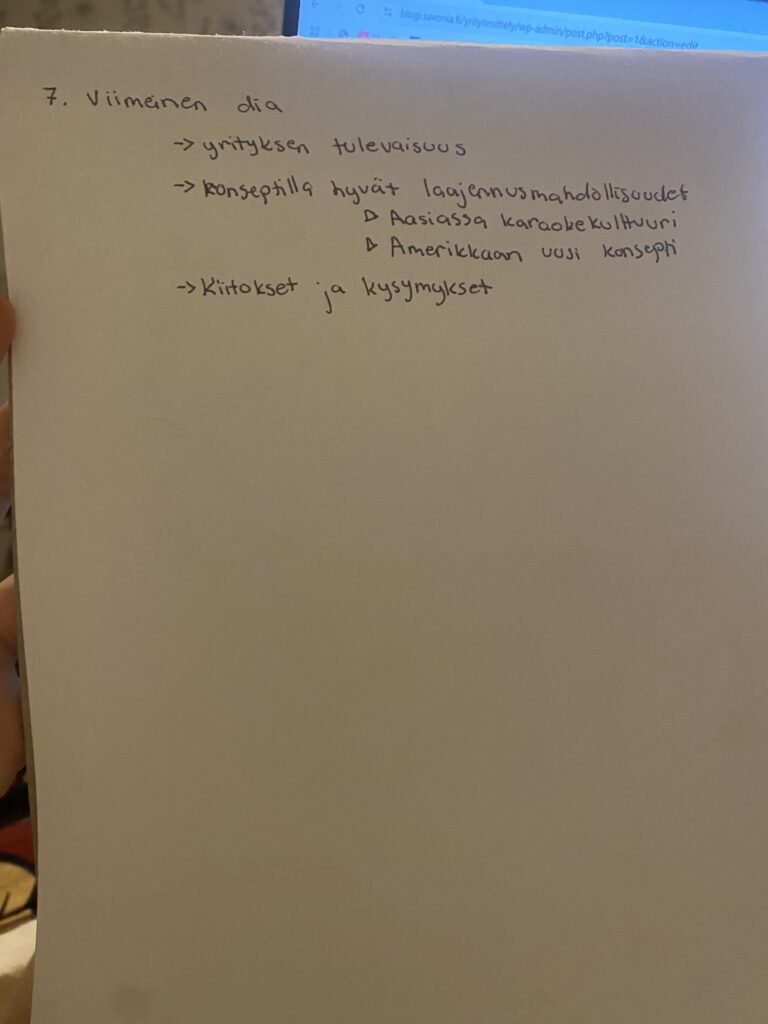 blogi.savonia.fi/yritysesittely/wp-admin/post.php?post=1&action=edit
7. Viimeinen dia
-> yrityksen tulevaisuus
-> konseptilla hyvät laajennusmahdollisuudet
▷ Aasiassa karaokekulttuuri
▷ Amerikkaan uusi konsepti
-> Kiitokset ja kysymykset